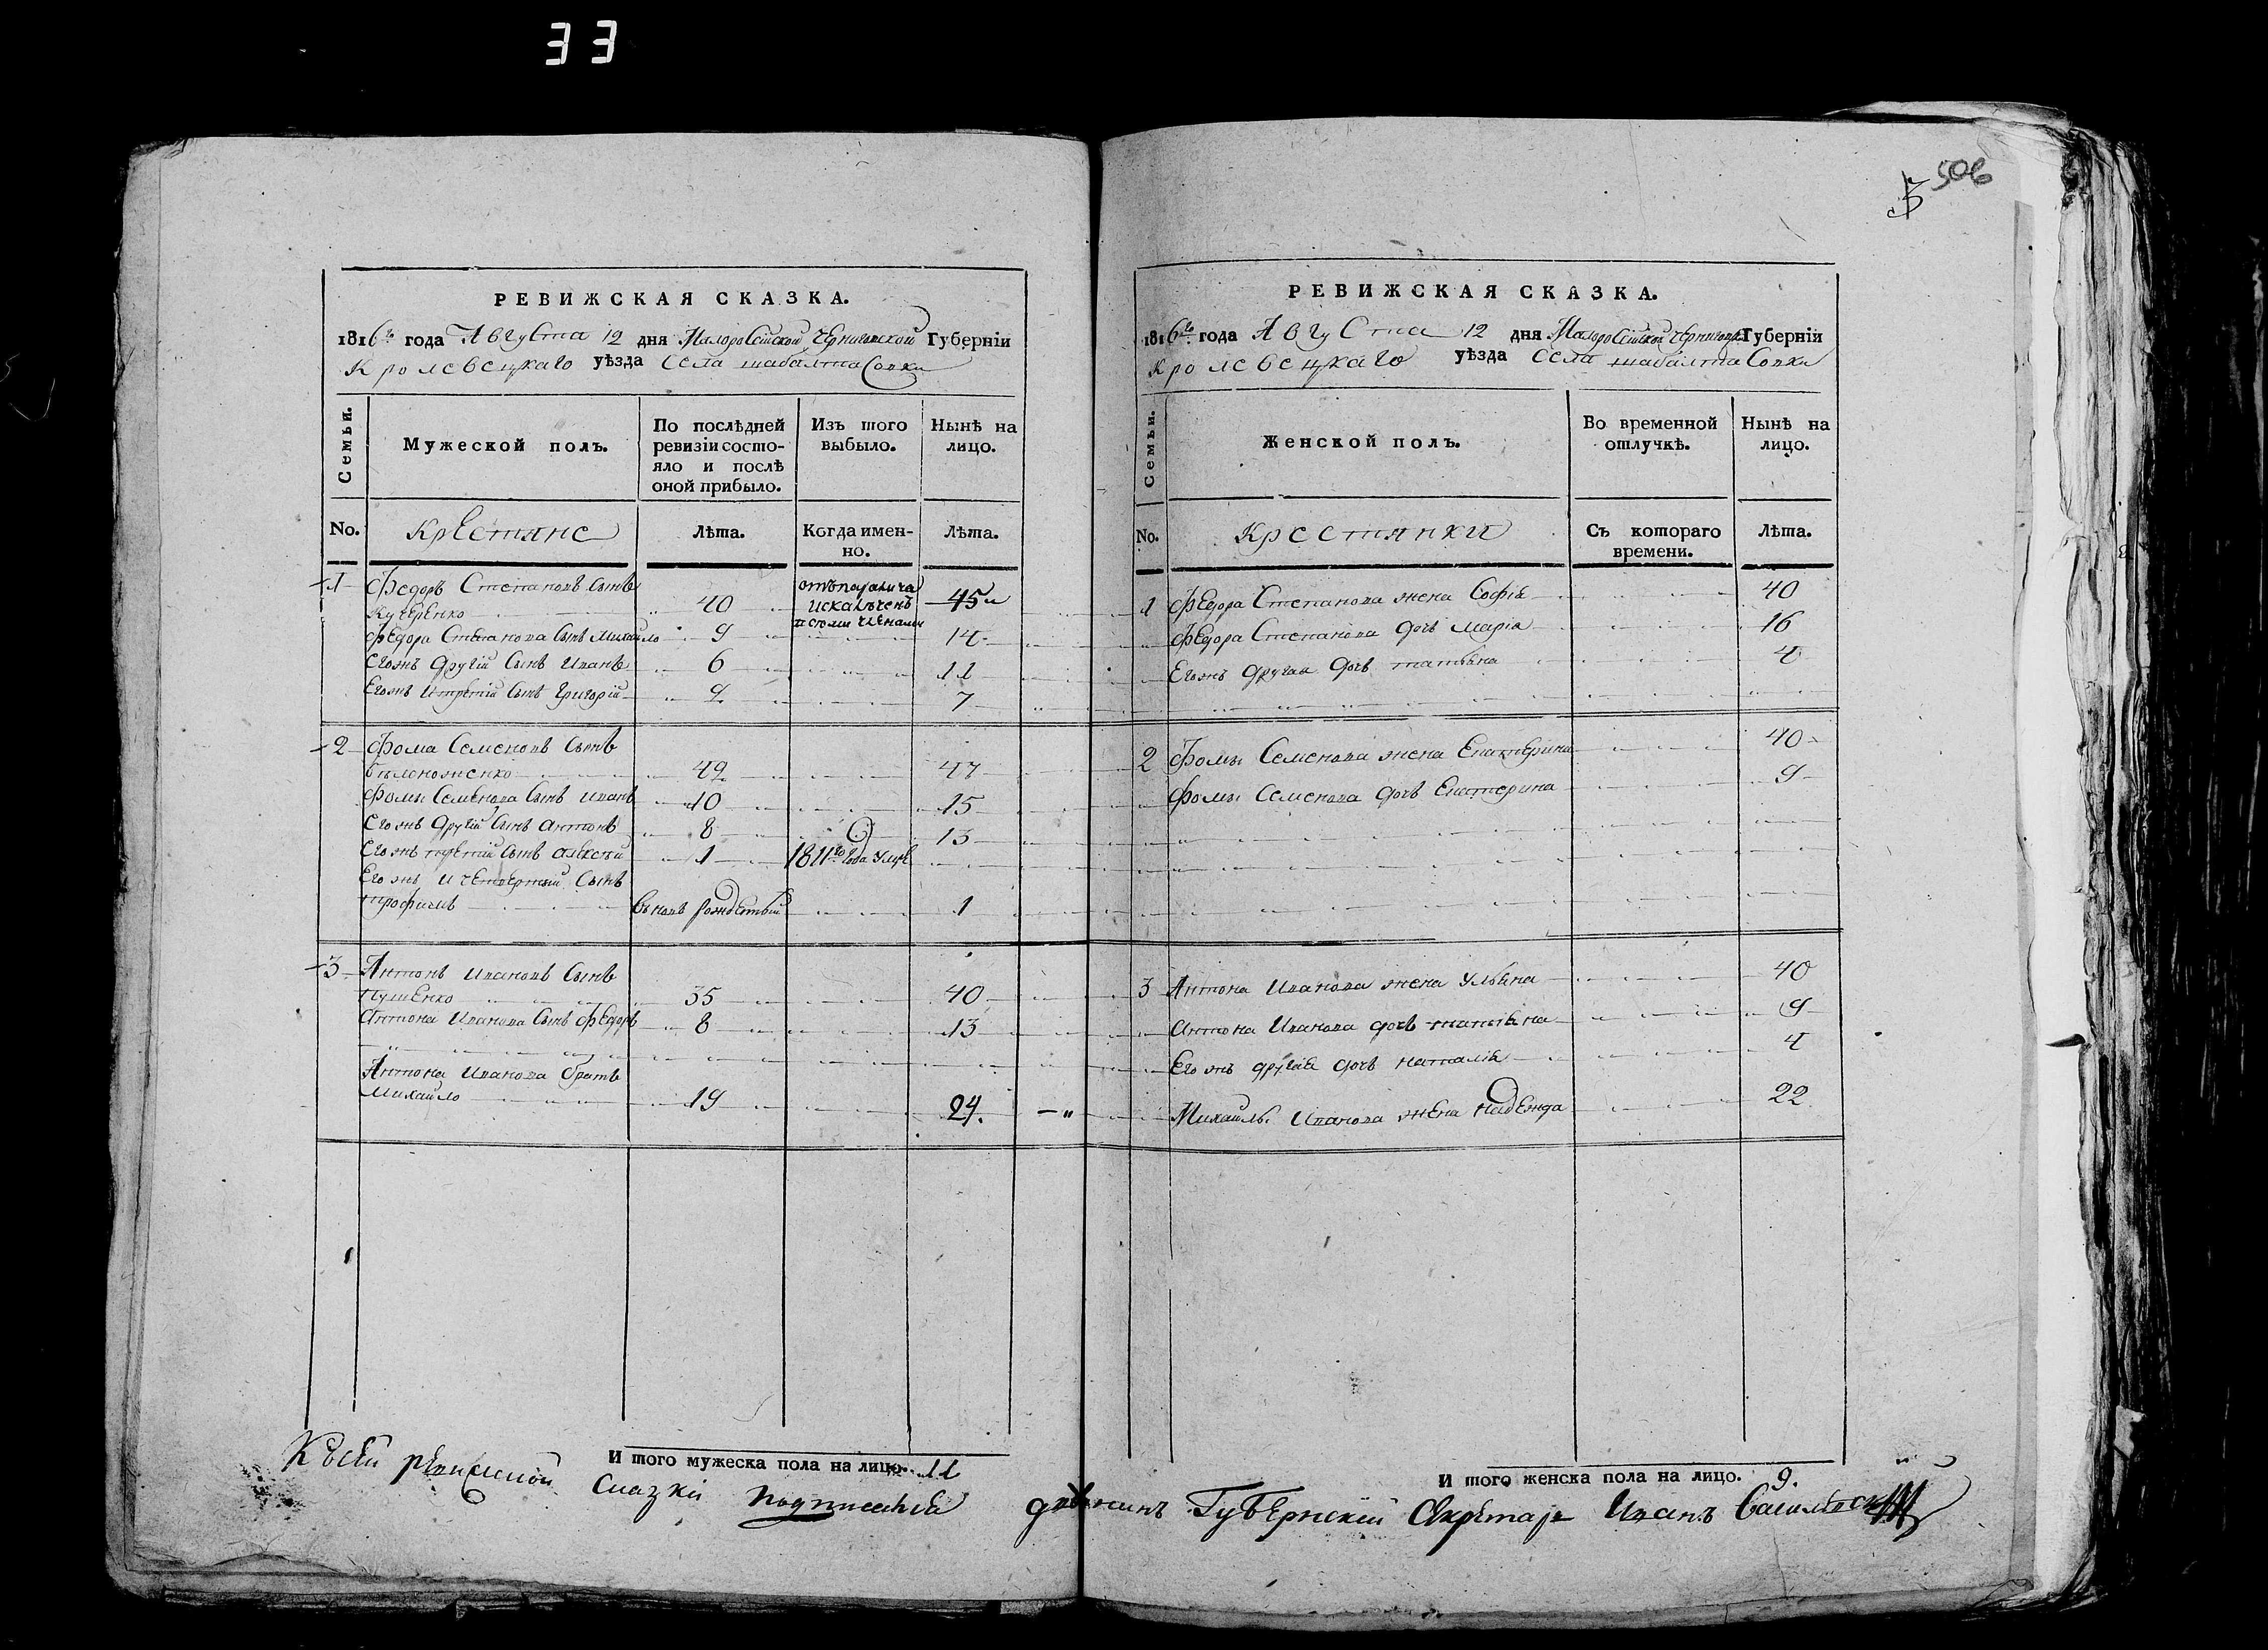 33
506
РЕВИЖСКАЯ СКАЗКА.
1816го года Августа 12 дня Малоросійской Черниговской Губерніи
Кролевецкаго уѣзда Села шабалтасовки
Семьи.
Мужеской полъ.
По послѣдней ревизіи состояло и послѣ оной прибыло.
Изъ того выбыло.
Нынѣ на лицо.
No.
Крестяне
Лѣта.
Когда именно.
Лѣта.
1 Федоръ Степановъ сынъ
Кучеренко 40 отъ паралича искалеченъ 45
Федора Степанова сынъ Михайло 9 14
Егожъ другій сынъ Иванъ 6 11
Егожъ и третій сынъ Григорій 2 7
2 Фома Семеновъ сынъ
42 47
Фомы Семенова сынъ Иванъ 10 15
Егожъ другій сынъ Антонъ 8 13
Егожъ третій сынъ Алексѣй 1 1811го года умре
Егожъ и четвертый сынъ
Трофимъ вновь рожденный 1
3 Антонъ Ивановъ сынъ
35 40
Антона Иванова сынъ Федоръ 8 13
Антона Иванова братъ
Михайло 19 24.
И того мужеска пола на лицо. 11
РЕВИЖСКАЯ СКАЗКА.
1816го года Августа 12 дня Малоросійской Черниговской Губерніи
Кролевецкаго уѣзда Села шабалтасовки
Семьи.
Женской полъ.
Во временной отлучкѣ.
Нынѣ на лицо.
No.
Крестянки
Съ котораго времени.
Лѣта.
1 Федора Степанова жена Софія 40
Федора Степанова дочь Марія 16
Егожъ другая дочь татьяна 4
2 Фомы Семенова жена Екатерина 40
Фомы Семенова дочь Екатерина 9
3 Антона Иванова жена Ульяна 40
Антона Иванова дочь татьяна 9
Егожъ другая дочь Наталія 4
Михайлы Иванова жена Надежда 22
И того женска пола на лицо. 9.
Къ сей ревижской Сказки Губернскій Секретарь Иванъ